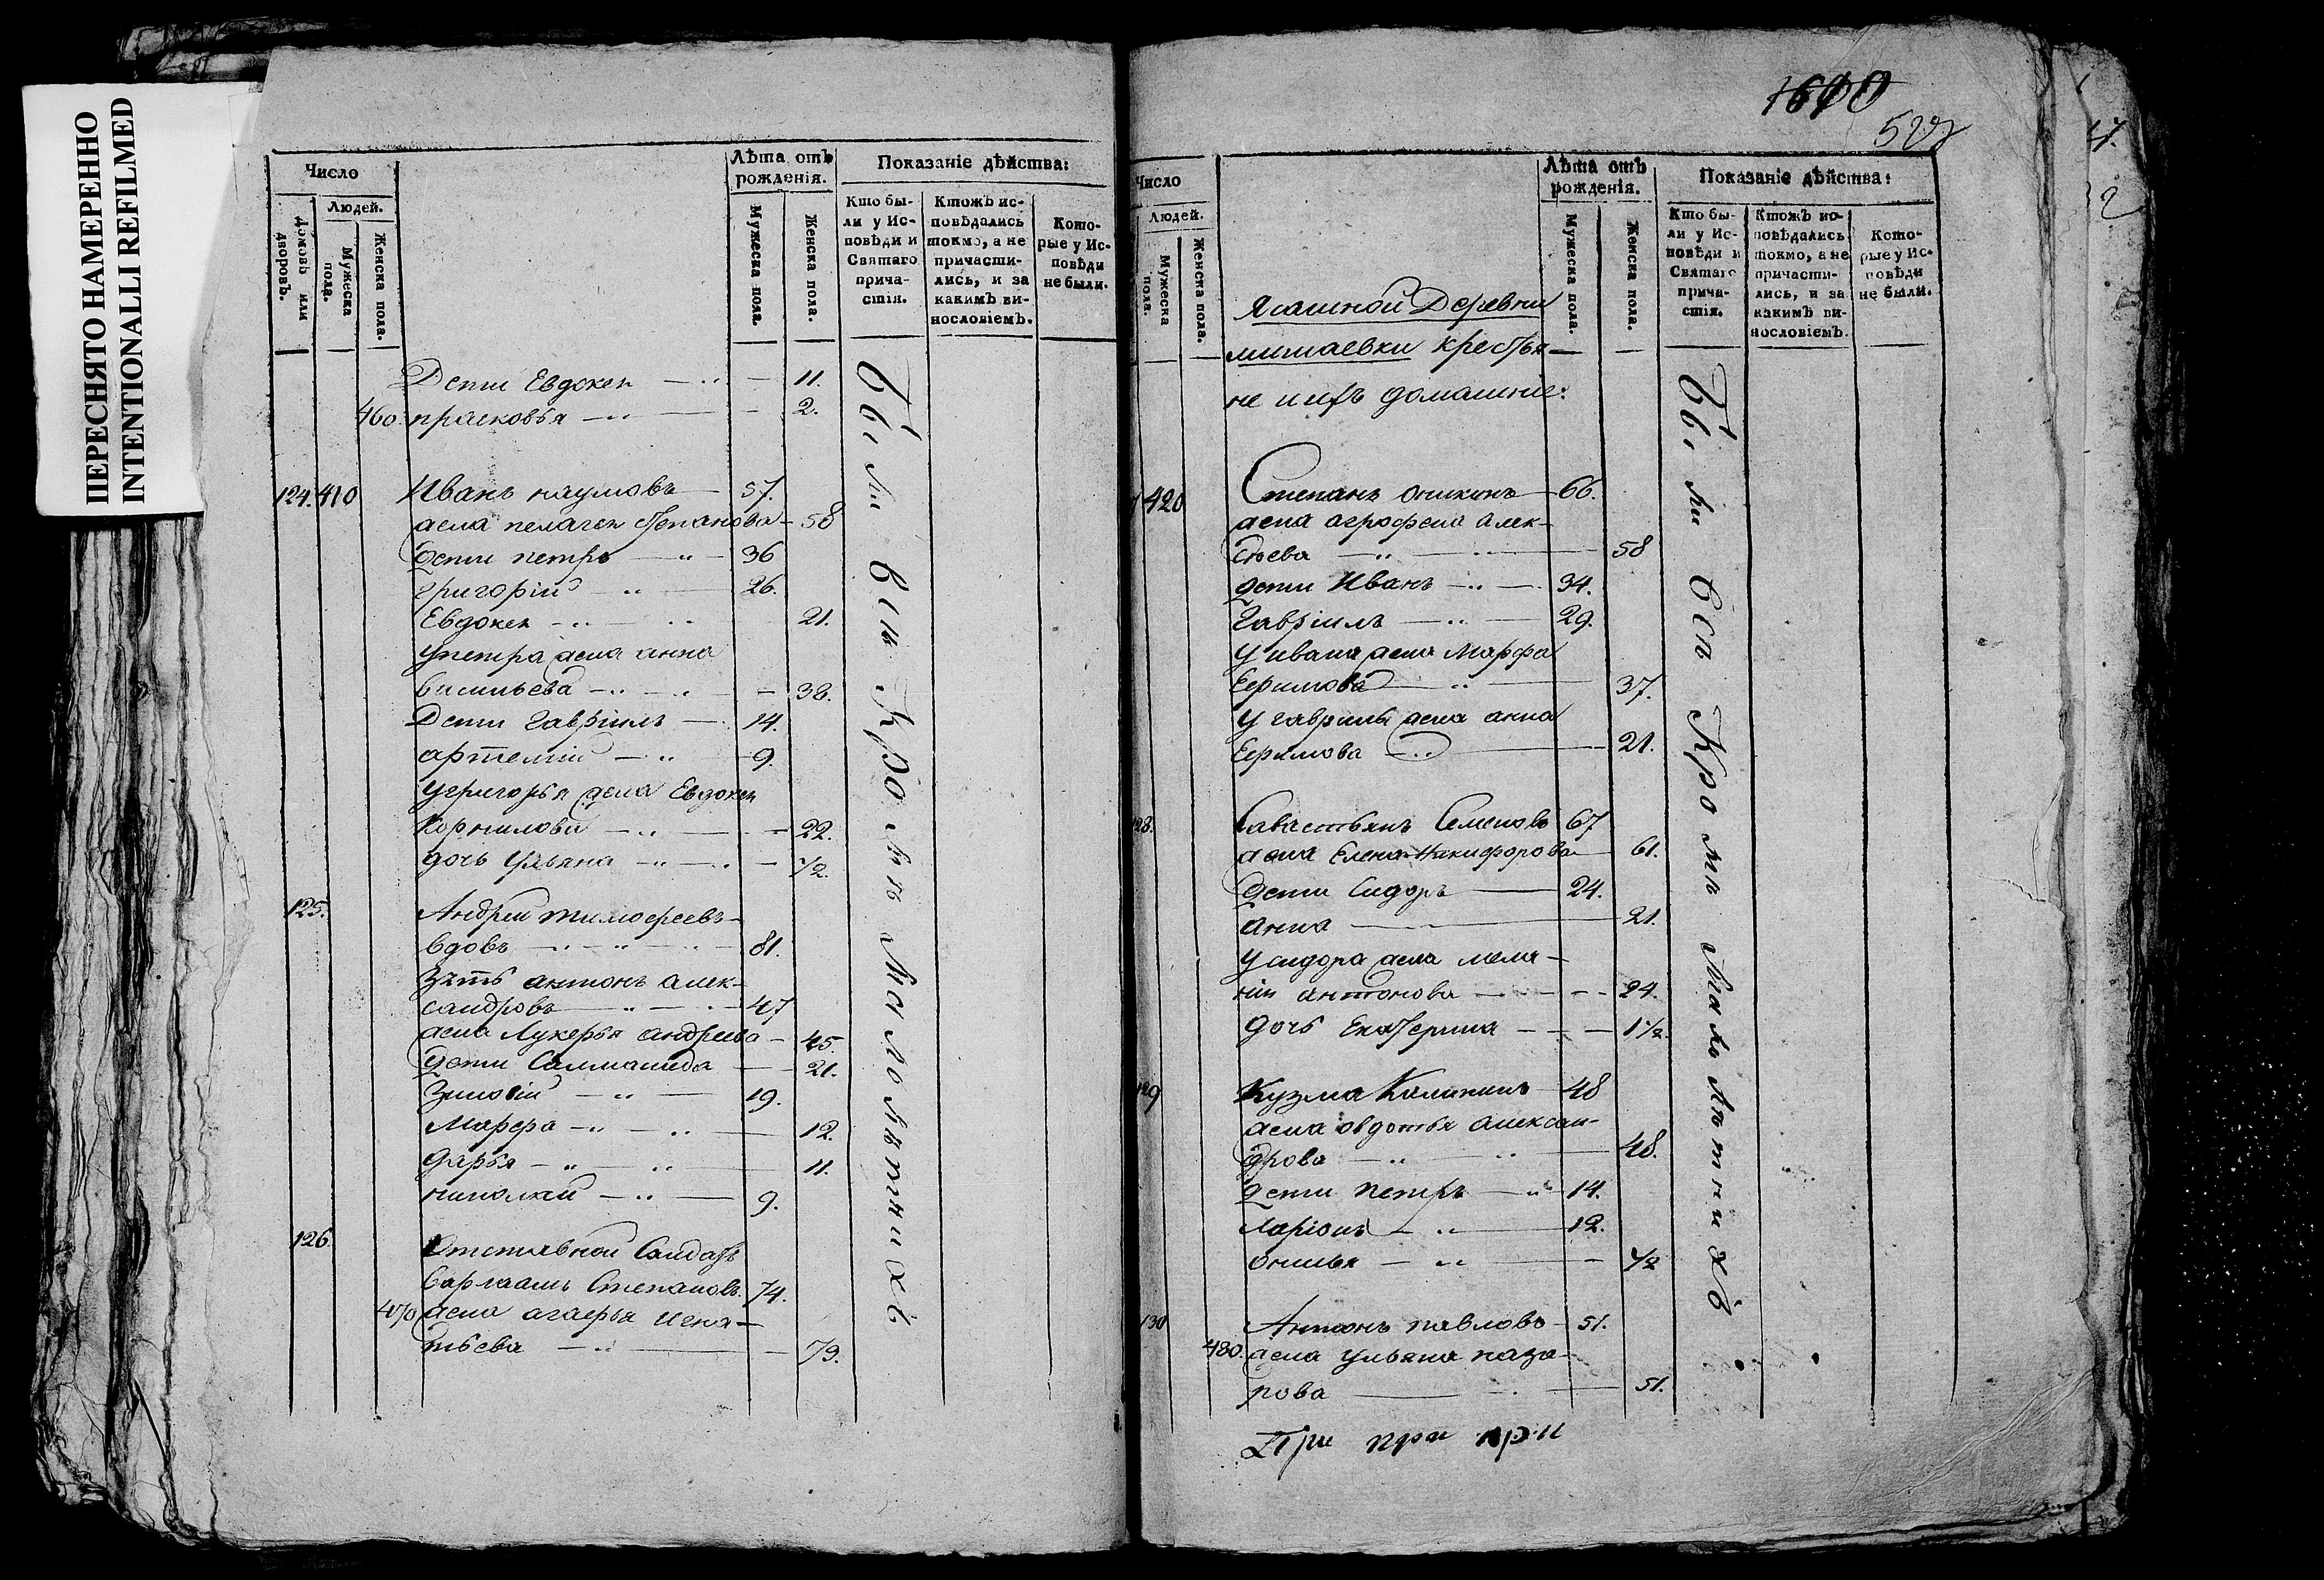 ПЕРЕСНЯТО НАМЕРЕННО
INTENTIONALLI REFILMED
Число
Людей.
Домовъ или дворовъ.
Мужеска пола.
Женска пола.
Лѣта отъ рожденія.
Мужеска пола.
Женска пола.
Показаніе дѣйства:
Кто бы-
ли у Ис-
повѣди и
Святаго
прича-
стія.
Ктожъ ис-
повѣдались
токмо, а не
причасти-
лись, и за
какимъ ви-
нословіемъ.
Кото-
рые у Ис-
повѣди
не были.
Дети Евдокея 11.
460. прасковья 2.
124. 410 Иванъ наумовъ 57.
жена пелагея степанова 58
дети петръ 36
григорій 26.
Евдокея 21.
у петра жена анна
васильева 38.
Дети гавріилъ 14.
артемій 9.
у григорья жена Евдокея
корнилова 22.
дочь ульяна 1/2.
125. Андрей тимофеевъ
вдовъ 81.
зять антонъ алек-
сандровъ 47
жена Лукерья андреева 45.
дети Саламанида 21.
Зиновій 19.
Марфа 12.
дарья 11.
николай 9.
126. Отставной Салдатъ
варлаамъ Степановъ 74.
470 жена агафья игна-
тьева 79.
Были вси кромѣ малолѣтнихъ
1610
Число
Людей.
Мужеска пола.
Женска пола.
Лѣта отъ рожденія.
Мужеска пола.
Женска пола.
Показаніе дѣйства:
Кто бы-
ли у Ис-
повѣди и
Святаго
прича-
стія.
Ктожъ ис-
повѣдались
токмо, а не
причасти-
лись, и за
какимъ ви-
нословіемъ.
Кото-
рые у Ис-
повѣди
не были.
Ясашной Деревни
мишаевки крестья-
не и ихъ домашніе:
420 Степанъ оникинъ 66.
жена агрофена алек-
сѣева 58
дети Иванъ 34.
Гавріилъ 29.
у ивана жена Марфа
Ефимова 37.
у гаврилы жена анна
Ефимова 21.
128. Савастьянъ Семеновъ 67
жена Елена никифорова 61.
дети Сидоръ 24.
анна 21.
у сидора жена мела-
нія антонова 24.
дочь Екатерина 1 1/2.
129 Кузма Калининъ 48
жена овдотья алексан-
дрова 48.
дети петръ 14.
ларіонъ 12.
1/2
130 Антонъ павловъ 51.
480. жена ульяна наза-
рова 51.
Были вси кромѣ малолѣтнихъ
При при при